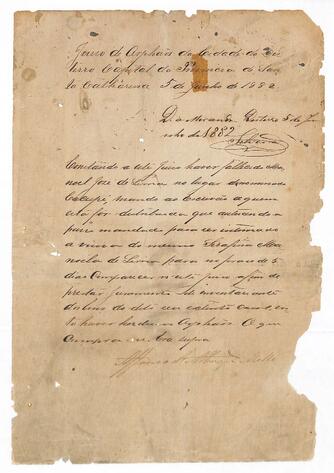 Juizo de Orphãos da Cidade do Des
terro Capital da Provincia de San
ta Catharina 5 de Junho de 1882
D. a Miranda Desterro 5 de Ju
nho de 1882
Constando a este Juizo haver fallecido Ma
noel José de Lima no lugar denominado
mando ao Escrivão a quem
esta for distribuida que autuando a
passe mandado para ser intimada
a viuva do mesmo Serafina Ma
noela de Lima para no praso de 5
dias comparecer n'este Juizo afim de
prestar juramento de inventariante
dos bens do dito seu
to haver herdeiros Orphãos O que
cumpra Era supra
Affonso de Albuquerque Mello